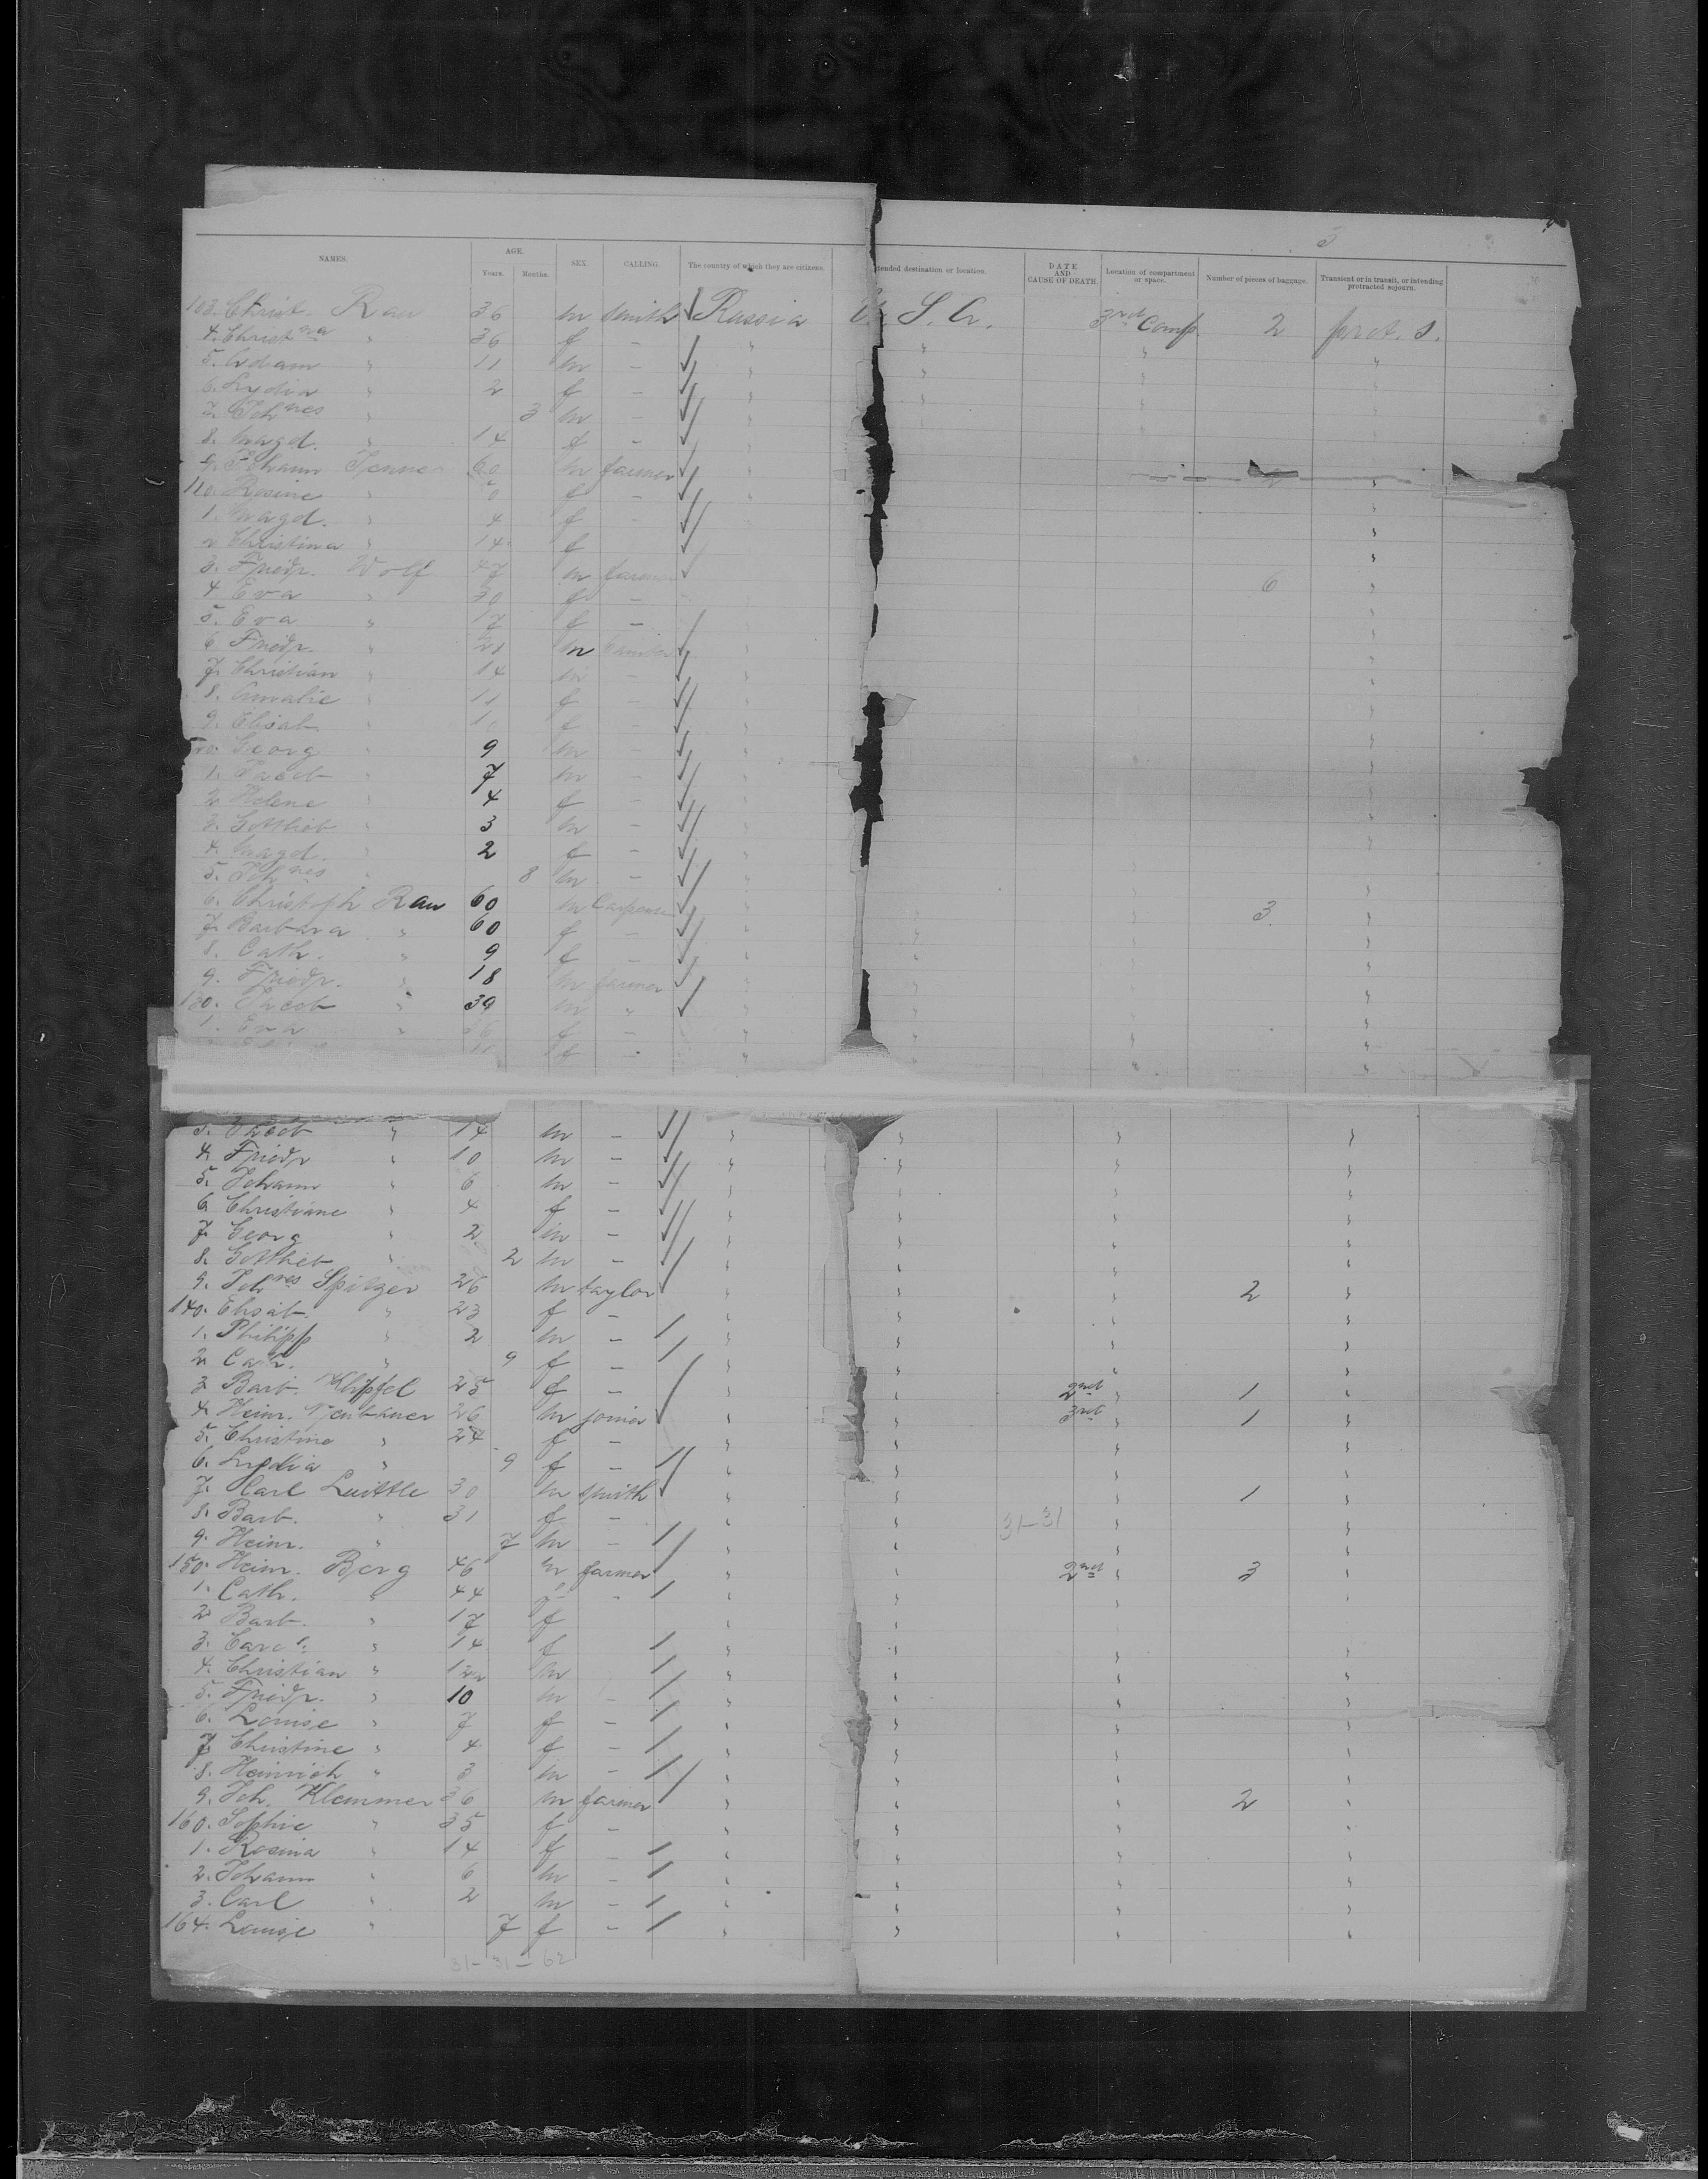 3
NAMES. AGE. Years. Months. SEX. CALLING. The country of which they are citizens. tended destination or location. DATE AND CAUSE OF DEATH. Location of compartment or space. Number of pieces of baggage. Transient or in transit, or intending protracted sojourn.
103. Christ. Rau 36 m smith Russia U. S. A. 3rd Comp. 2 prot. s.
4. Christna " 36 f - " " " "
5. Adam " 11 m - " " " "
6. Lydia " 2 f - " "
7. Johnes " 3 m - "
8. Magd. " 14 f - "
9. Johann Jenner 60 m farmer "
110. Rosine " f - "
1. Magd. " 4 f - "
2. Christina " 14 f "
3. Friedr. Wolf 47 m farmer 6 "
4. Eva " 30 f - "
5. Eva " 17 f - "
6. Friedr. " 21 m "
7. Christian " 14 m - "
8. Amalie " 11 f - "
9. Elisab. " f - "
120. Georg " 9 m - "
1. Jacob " 7 m - "
2. Helene " 4 f - "
3. Gottlieb " 3 m - "
4. Magd. " 2 f - "
5. Johnes " 8 m - "
6. Christoph Rau 60 m Carpenter " 3 "
7. Barbara " 60 f - " "
8. Cath. " 9 f - " "
9. Friedr. " 18 m farmer " "
130. Jacob " 39 m " " "
1. Eva " 36 f - " "
11 f - " "
3. Jacob " 14 m - " " " "
4. Friedr " 10 m - " " " "
5. Johann " 6 m - " " " "
6. Christiane " 4 f - " " " "
7. Georg " 2 m - " " " "
8. Gottlieb " 2 m - " " " "
9. Johnes Spitzer 26 m taylor " " " 2 "
140. Elisab. " 23 f - " " " "
1. Philipp " 2 m - " " " "
2. Cath. " 9 f - " " " "
3. Barb. Klipfel 25 f - " " 2nd " 1 "
4. Heinr. Neubauer 26 m joiner " " 3rd " 1 "
5. Christine " 24 f - " " " "
6. Lydia " 9 f - " " " "
7. Carl Luittle 30 m smith " " " 1 "
8. Barb. " 31 f - " 31-31 " "
9. Heinr. " 7 m - " " " "
150. Heinr. Berg 46 m farmer " " 2nd " 3 "
1. Cath. " 44 f - " " " "
2. Barb. " 17 f
3. Carol. " 14 f " " " "
4. Christian " 12 m " " " "
5. Friedr. " 10 m - " " " "
6. Louise " 7 f - " " " "
7. Christine " 4 f - " " " "
8. Heinrich " 3 m - " " " "
9. Joh. Klemmer 36 m farmer " " " 2 "
160. Sophie " 35 f - " " " "
1. Rosina " 14 f - " " " "
2. Johann " 6 m - " " " "
3. Carl " 2 m - " " " "
164. Louise " 7 f - " " " "
31-31-62